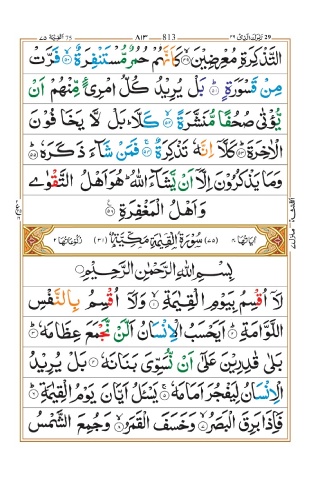 القيمة ٧٥ ٨١٣ 813 تبٰرك الذى ٢٩
التَّذْكِرَةِ مُعْرِضِيْنَ ۙ﴿۴۹﴾ كَاَنَّهُمْ حُمُرٌ مُّسْتَنْفِرَةٌ ۙ﴿۵۰﴾ فَرَّتْ
مِنْ قَسْوَرَةٍ ؕ﴿۵۱﴾ بَلْ يُرِيْدُ كُلُّ امْرِئٍ مِّنْهُمْ اَنْ
يُّؤْتٰى صُحُفًا مُّنَشَّرَةً ۙ﴿۵۲﴾ كَلَّا ؕ بَلْ لَّا يَخَافُوْنَ
الْاٰخِرَةَ ؕ﴿۵۳﴾ كَلَّاۤ اِنَّهٗ تَذْكِرَةٌ ۚ﴿۵۴﴾ فَمَنْ شَآءَ ذَكَرَهٗ ؕ﴿۵۵﴾
وَمَا يَذْكُرُوْنَ اِلَّاۤ اَنْ يَّشَآءَ اللّٰهُ ؕ هُوَ اَهْلُ التَّقْوٰى
وَاَهْلُ الْمَغْفِرَةِ ﴿۵۶﴾
اٰيَاتُهَا ۴۰ (٧٥) سُوْرَةُ الْقِيٰمَةِ مَكِّيَّةٌ (٣١) رُكُوْعَاتُهَا ٢
بِسْمِ اللّٰهِ الرَّحْمٰنِ الرَّحِيْمِ
لَاۤ اُقْسِمُ بِيَوْمِ الْقِيٰمَةِ ۙ﴿۱﴾ وَلَاۤ اُقْسِمُ بِالنَّفْسِ
اللَّوَّامَةِ ؕ﴿۲﴾ اَيَحْسَبُ الْاِنْسَانُ اَلَّنْ نَّجْمَعَ عِظَامَهٗ ؕ﴿۳﴾
بَلٰى قٰدِرِيْنَ عَلٰۤى اَنْ نُّسَوِّىَ بَنَانَهٗ ﴿۴﴾ بَلْ يُرِيْدُ
الْاِنْسَانُ لِيَفْجُرَ اَمَامَهٗ ۚ﴿۵﴾ يَسْـَٔلُ اَيَّانَ يَوْمُ الْقِيٰمَةِ ؕ﴿۶﴾
فَاِذَا بَرِقَ الْبَصَرُ ۙ﴿۷﴾ وَخَسَفَ الْقَمَرُ ۙ﴿۸﴾ وَجُمِعَ الشَّمْسُ